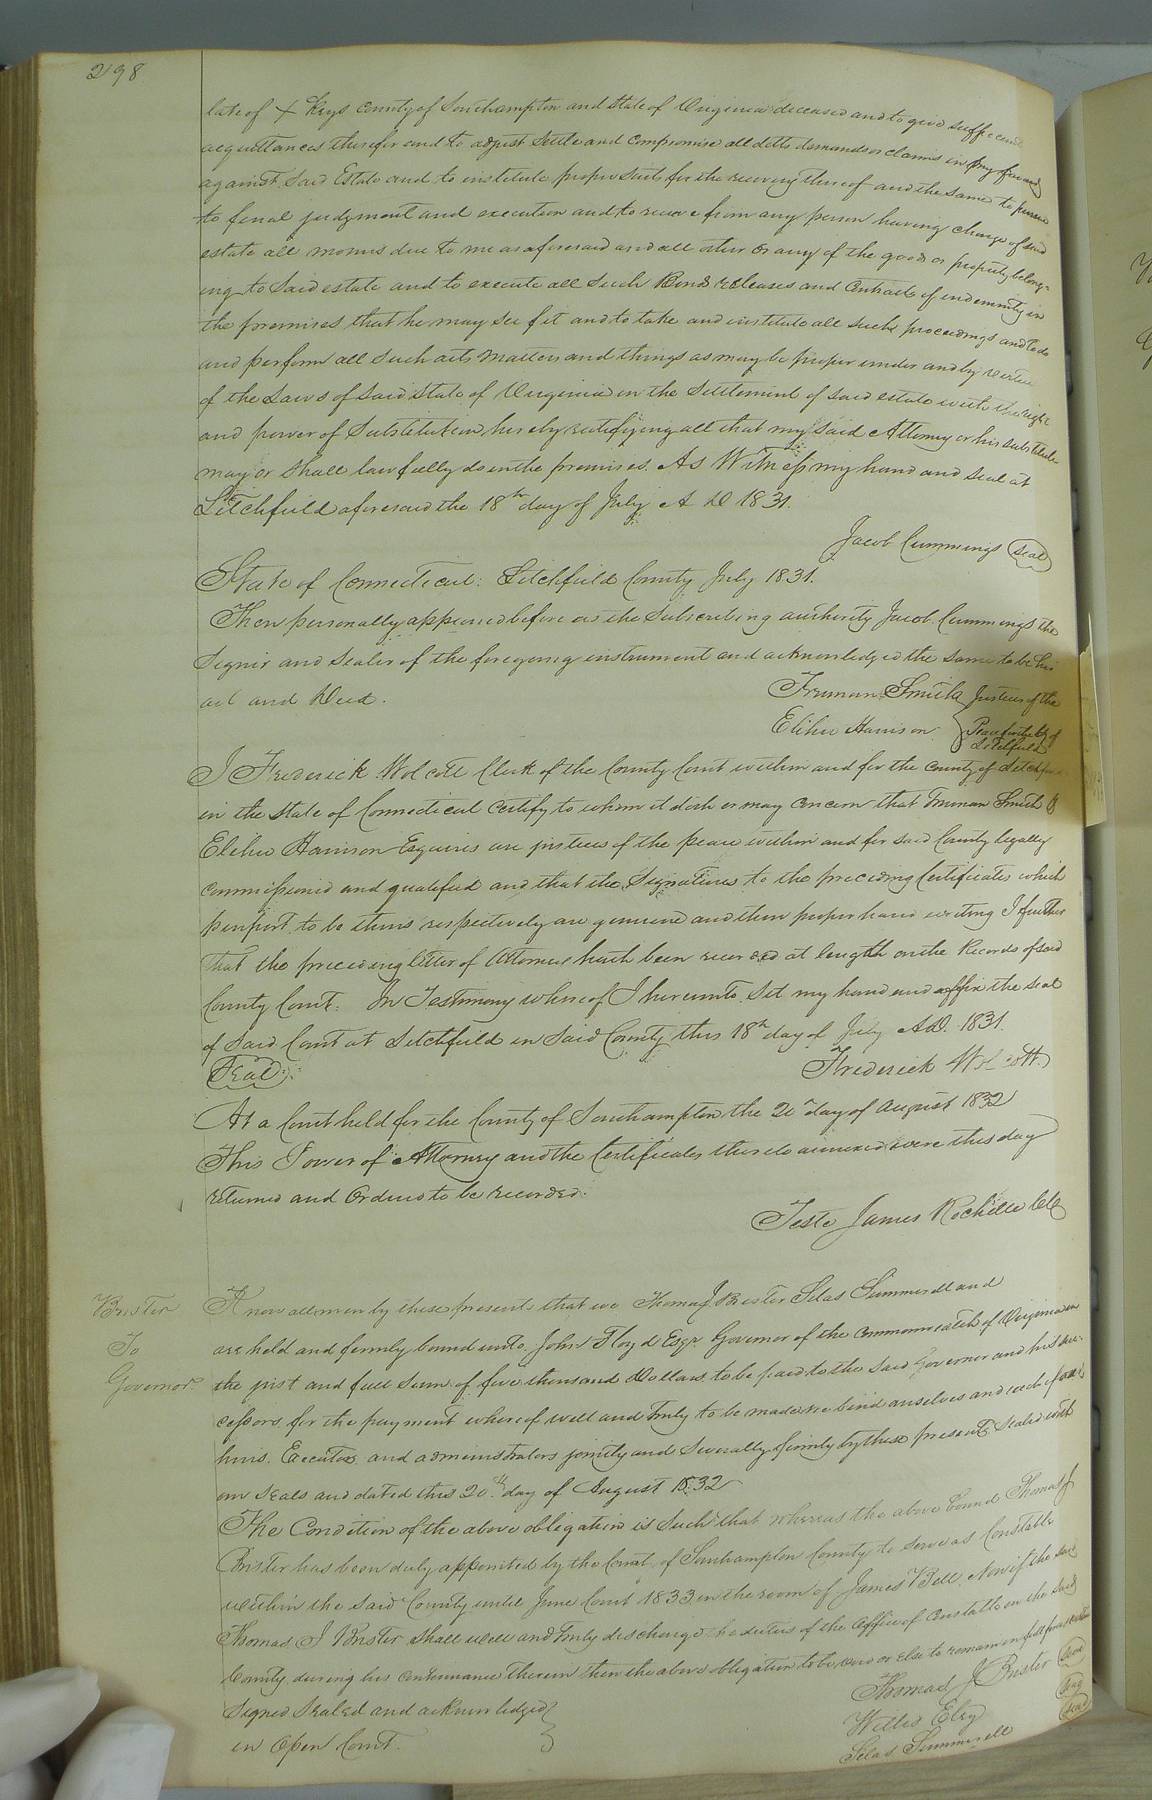 298
late of X Keys County of Southampton and State of Virginia deceased and to give sufficient
acquittances therefor and to adjust Settle and Compromise all debts demands or claims in my favor and
against said Estate and to institute proper suits for the recovery thereof and the same to pursue
to final judgment and execution and to receive from any person having charge of said
estate all monies due to me as aforesaid and all other or any of the goods or property belong-
ing to said estate and to execute all such Bonds releases and Contracts of indemnity in
the premises that he may see fit and to take and institute all such proceedings and to do
and perform all such acts Matters and things as may be proper under and by virtue
of the Laws of said State of Virginia in the Settlement of said estate with the right
and power of Substitution hereby ratifying all that my said Attorney or his substitute
may or shall lawfully do in the premises. As Witness my hand and seal at
Litchfield aforesaid the 18th day of July A D 1831.
Jacob Cummings Seal
State of Connecticut: Litchfield County July 1831.
Then personally appeared before us the Subscribing authority Jacob Cummings the
Signir and Sealer of the foregoing instrument and acknowledged the same to be his
act and Deed.
Truman Smith Justices of the
Elihu Harrison Peace for the Cty of
Litchfield
I Frederick Wolcott Clerk of the County Court within and for the County of Litchfield
in the State of Connecticut Certify to whom it doth or may concern that Truman Smith &
Elihu Harrison Esquires are justices of the peace within and for said County legally
commissioned and qualified and that the Signatures to the preceding Certificates which
purport to be theirs respectively are genuine and their proper hand writing I further
that the preceding letter of Attorney hath been recorded at length on the Records of said
County Court. In Testimony whereof I hereunto Set my hand and affix the seal
of said Court at Litchfield in said County this 18th day of July A.D. 1831.
Seal
Frederick Wolcott.
At a Court held for the County of Southampton the 20th day of August 1832
This Power of Attorney and the Certificates thereto annexed were this day
returned and Ordered to be recorded.
Teste James Rochelle Clk
Brister
To
Governor
Know all men by these presents that we Thomas J Brister Silas Summerell and
are held and firmly bound unto John Floyd Esqr Governor of the Commonwealth of Virginia in
the just and full sum of five thousand Dollars, to be paid to the said Governor and his suc-
cessors, for the payment whereof well and truly to be made we bind ourselves and each of our
heirs, Executors and administrators jointly and severally firmly by these presents Sealed with
our Seals and dated this 20th day of August 1832
The Condition of the above obligation is Such that whereas the above bound Thomas J
Brister has been duly appointed by the Court of Southampton County to serve as Constable
within the said County until June Court 1833 in the room of James Bell. Now if the said
Thomas J Brister shall well and truly discharge the duties of the Office of Constable in the said
County during his continuance therein then the above obligation to be void or Else to remain in full force & virtue
Signed Sealed and acknowledged
in Open Court.
Thomas J Brister Seal
Willis Eley Seal
Silas Summerell Seal